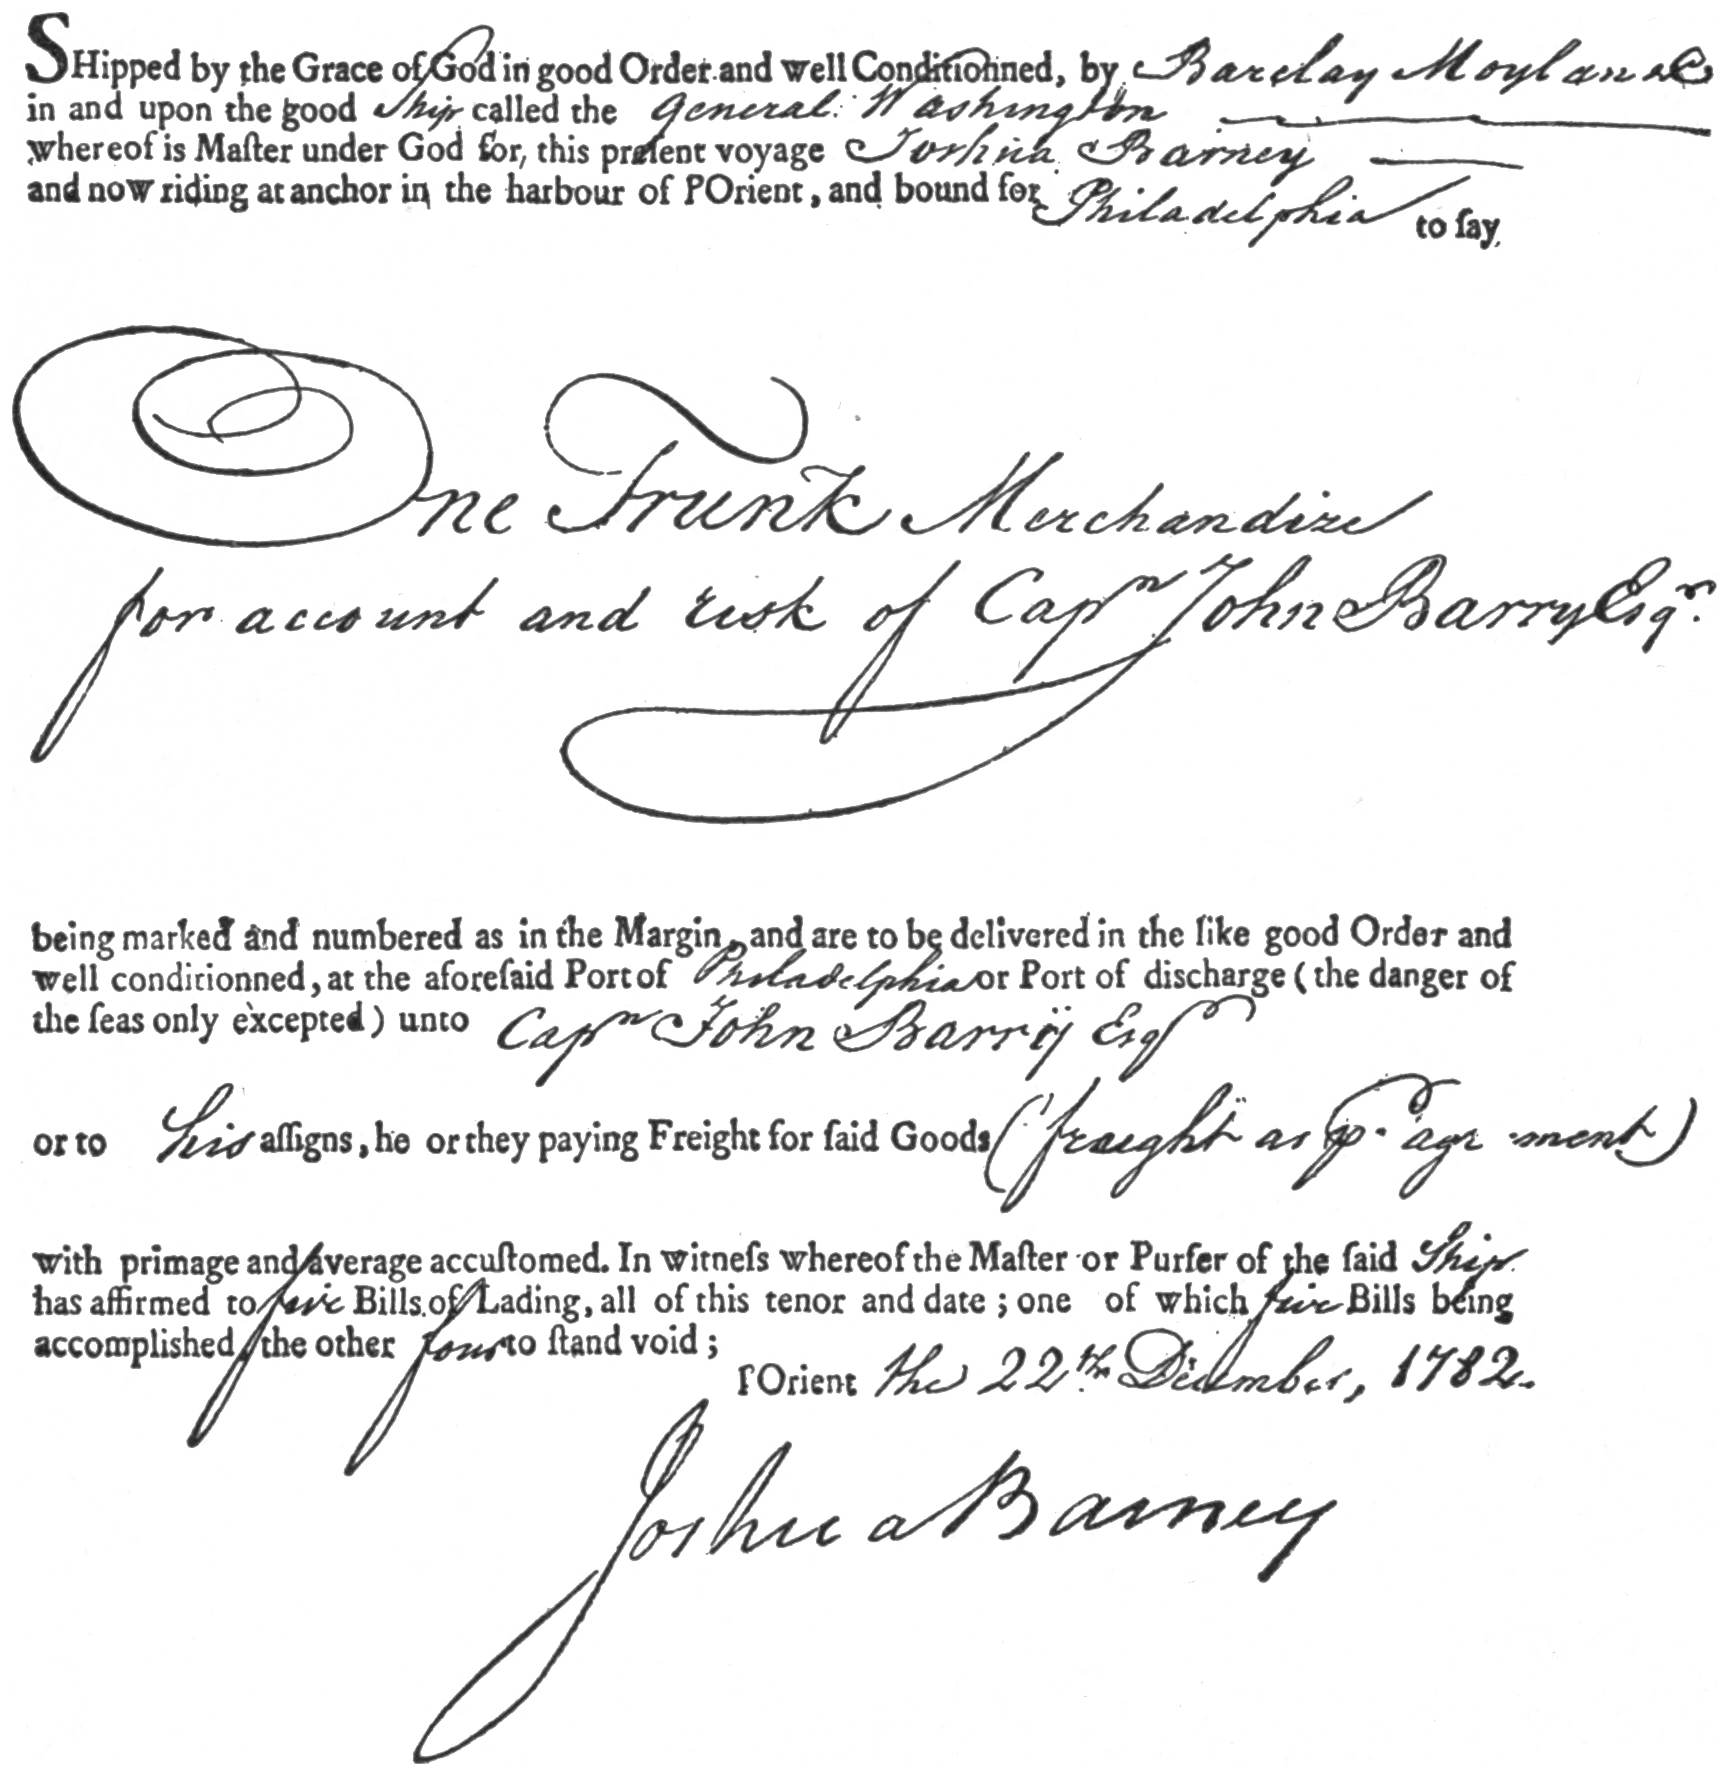 SHipped by the Grace of God in good Order and well Conditionned, by Barclay Moylan &C
in and upon the good Ship called the General Washington
whereof is Maſter under God for, this preſent voyage Joshua Barney
and now riding at anchor in the harbour of l'Orient, and bound for Philadelphia to ſay,
One Trunk Merchandize
for account and risk of Capⁿ John Barry Esqʳ.
being marked and numbered as in the Margin, and are to be delivered in the like good Order and
well conditionned, at the aforeſaid Port of Philadelphia or Port of diſcharge (the danger of
the ſeas only excepted) unto Capⁿ John Barrÿ Esqʳ
or to his aſſigns, he or they paying Freight for ſaid Goods (fraight as p. agrement)
with primage and average accuſtomed. In witneſs whereof the Maſter or Purſer of the ſaid Ship
has affirmed to five Bills of Lading, all of this tenor and date; one of which five Bills being
accompliſhed, the other four to ſtand void;
l'Orient the 22th December, 1782.
Joshua Barney